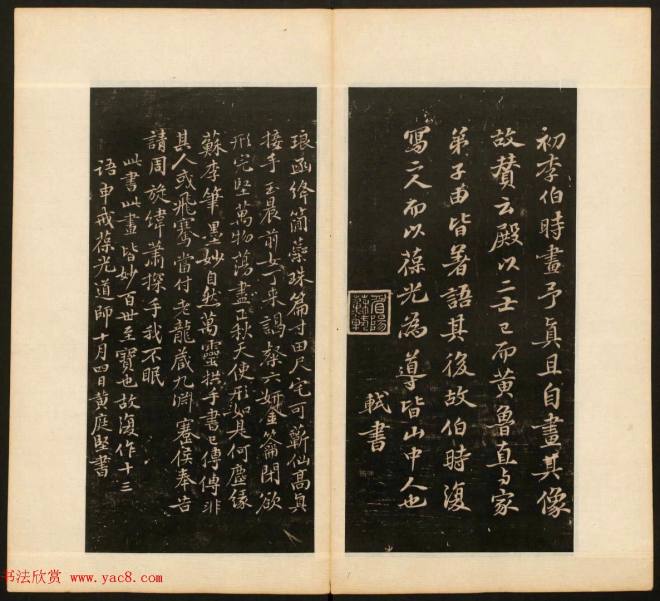 初李伯時畫予真且自畫其像
故贊云殿以二士已而黃魯直與家
弟子由皆著語其後故伯時復
寫二人而以葆光為導皆山中人也
軾書
眉陽
蘇軾
琅函絳簡蘂珠篇寸田尺宅可蘄仙高真
接手玉晨前女丁來謁粲六妍金籥閉欲
形完堅萬物蕩盡正秋天使形如是何塵緣
蘇李筆墨妙自然萬靈拱手書已傳傳非
其人或飛騫當付老龍藏九淵蹇侯奉告
請周旋緯蕭探手我不眠
此書此畫皆妙百世至寶也故復作十三
語申戒葆光道師十月四日黃庭堅書
书法欣赏 www.yac8.com